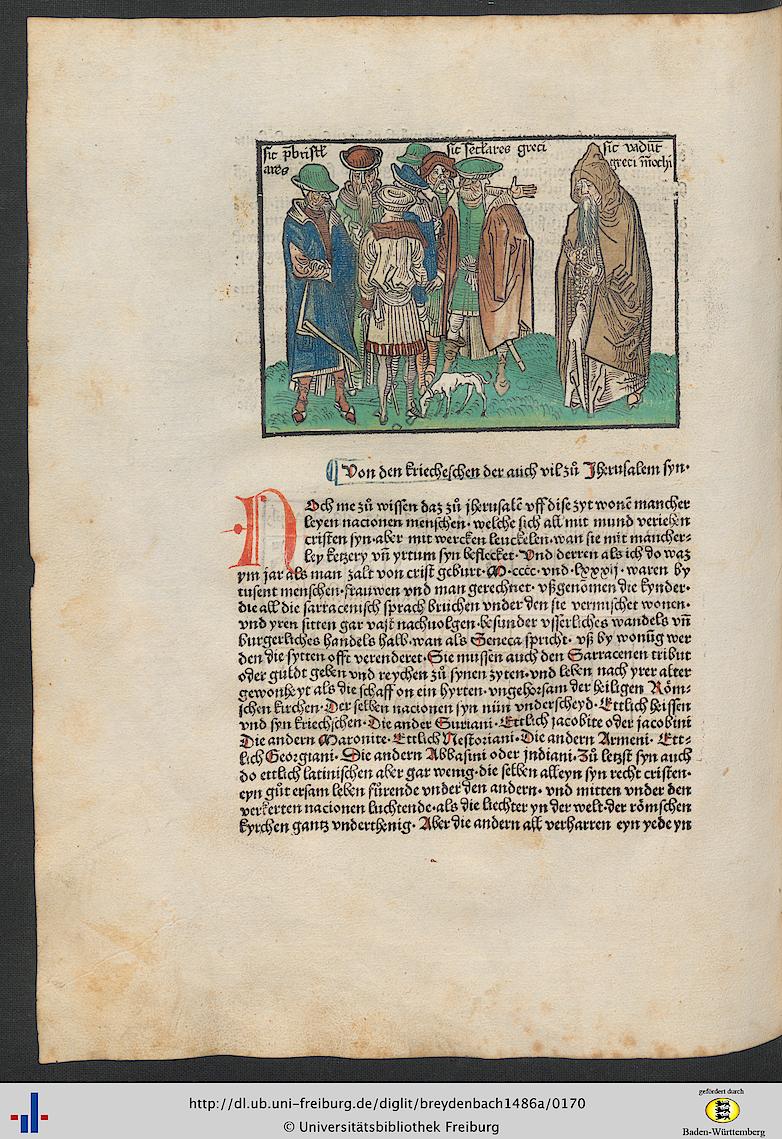 sic p̄brist̄
ares
sic sec̄lares greci
sic vadūt
greci mōchi
Von den kriecheschen der auch vil zů Jherusalem syn·
NOch me zů wissen daz zů jherusalē vff dise zyt wonē mancher
leyen nacionen menschen· welche sich all mit mund veriehen
cristen syn·aber mit wercken leuckelen·wan sie mit māncher⸗
ley ketzery vn̄ yrtum syn beflecket· Vnd derren als ich do waz
ym jar als man zalt von crist geburt·M·cccc·vnd·lxxxiij·waren by
tusent menschen·frauwen vnd man gerechnet· vßgenōmen die kynder·
die all die sarracenisch sprach bruchen vnder den sie vermischet wonen·
vnd yren sitten gar vast nachuolgen·besunder vsserliches wandels vn̄
burgerliches handels halb·wan als Seneca spricht· vß by wonūg wer
den die sytten offt verenderet·Sie mussen auch den Sarracenen tribut
oder guldt geben vnd reychen zů synen zyten·vnd leben nach yrer alter
gewonheyt als die schaff on ein hyrten·vngehorsam der heiligen Röm⸗
schen kirchen·Der selben nacionen syn nün vnderscheyd·Ettlich heissen
vnd syn kriechschen·Die ander Suriani·Ettlich jacobite oder jacobini
Die andern Maronite·Ettlich Nestoriani·Die andern Armeni· Ett⸗
lich Georgiani·Die andern Abbasini oder jndiani·Zů letzst syn auch
do ettlich latinischen aber gar wenig·die selben alleyn syn recht cristen·
eyn gůt ersam leben fürende vnder den andern· vnd mitten vnder den
verkerten nacionen luchtende·als die liechter yn der welt·der römschen
kyrchen gantz vnderthenig· Aber die andern all verharren eyn yede yn
http://dl.ub.uni-freiburg.de/diglit/breydenbach1486a/0170
© Universitätsbibliothek Freiburg
gefördert durch
Baden-Württemberg